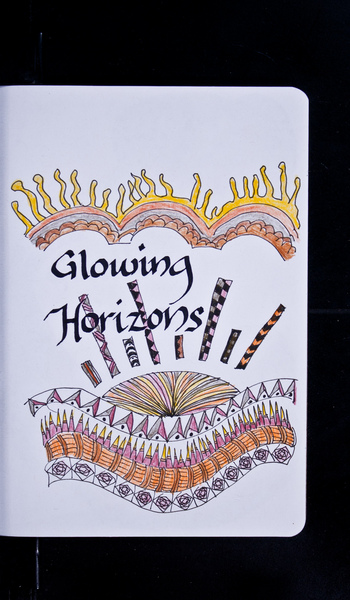 Glowing
Horizons